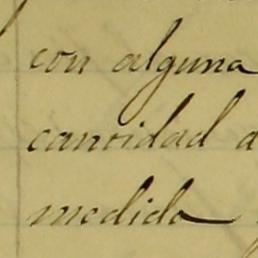 con alguna
cantidad a
medida